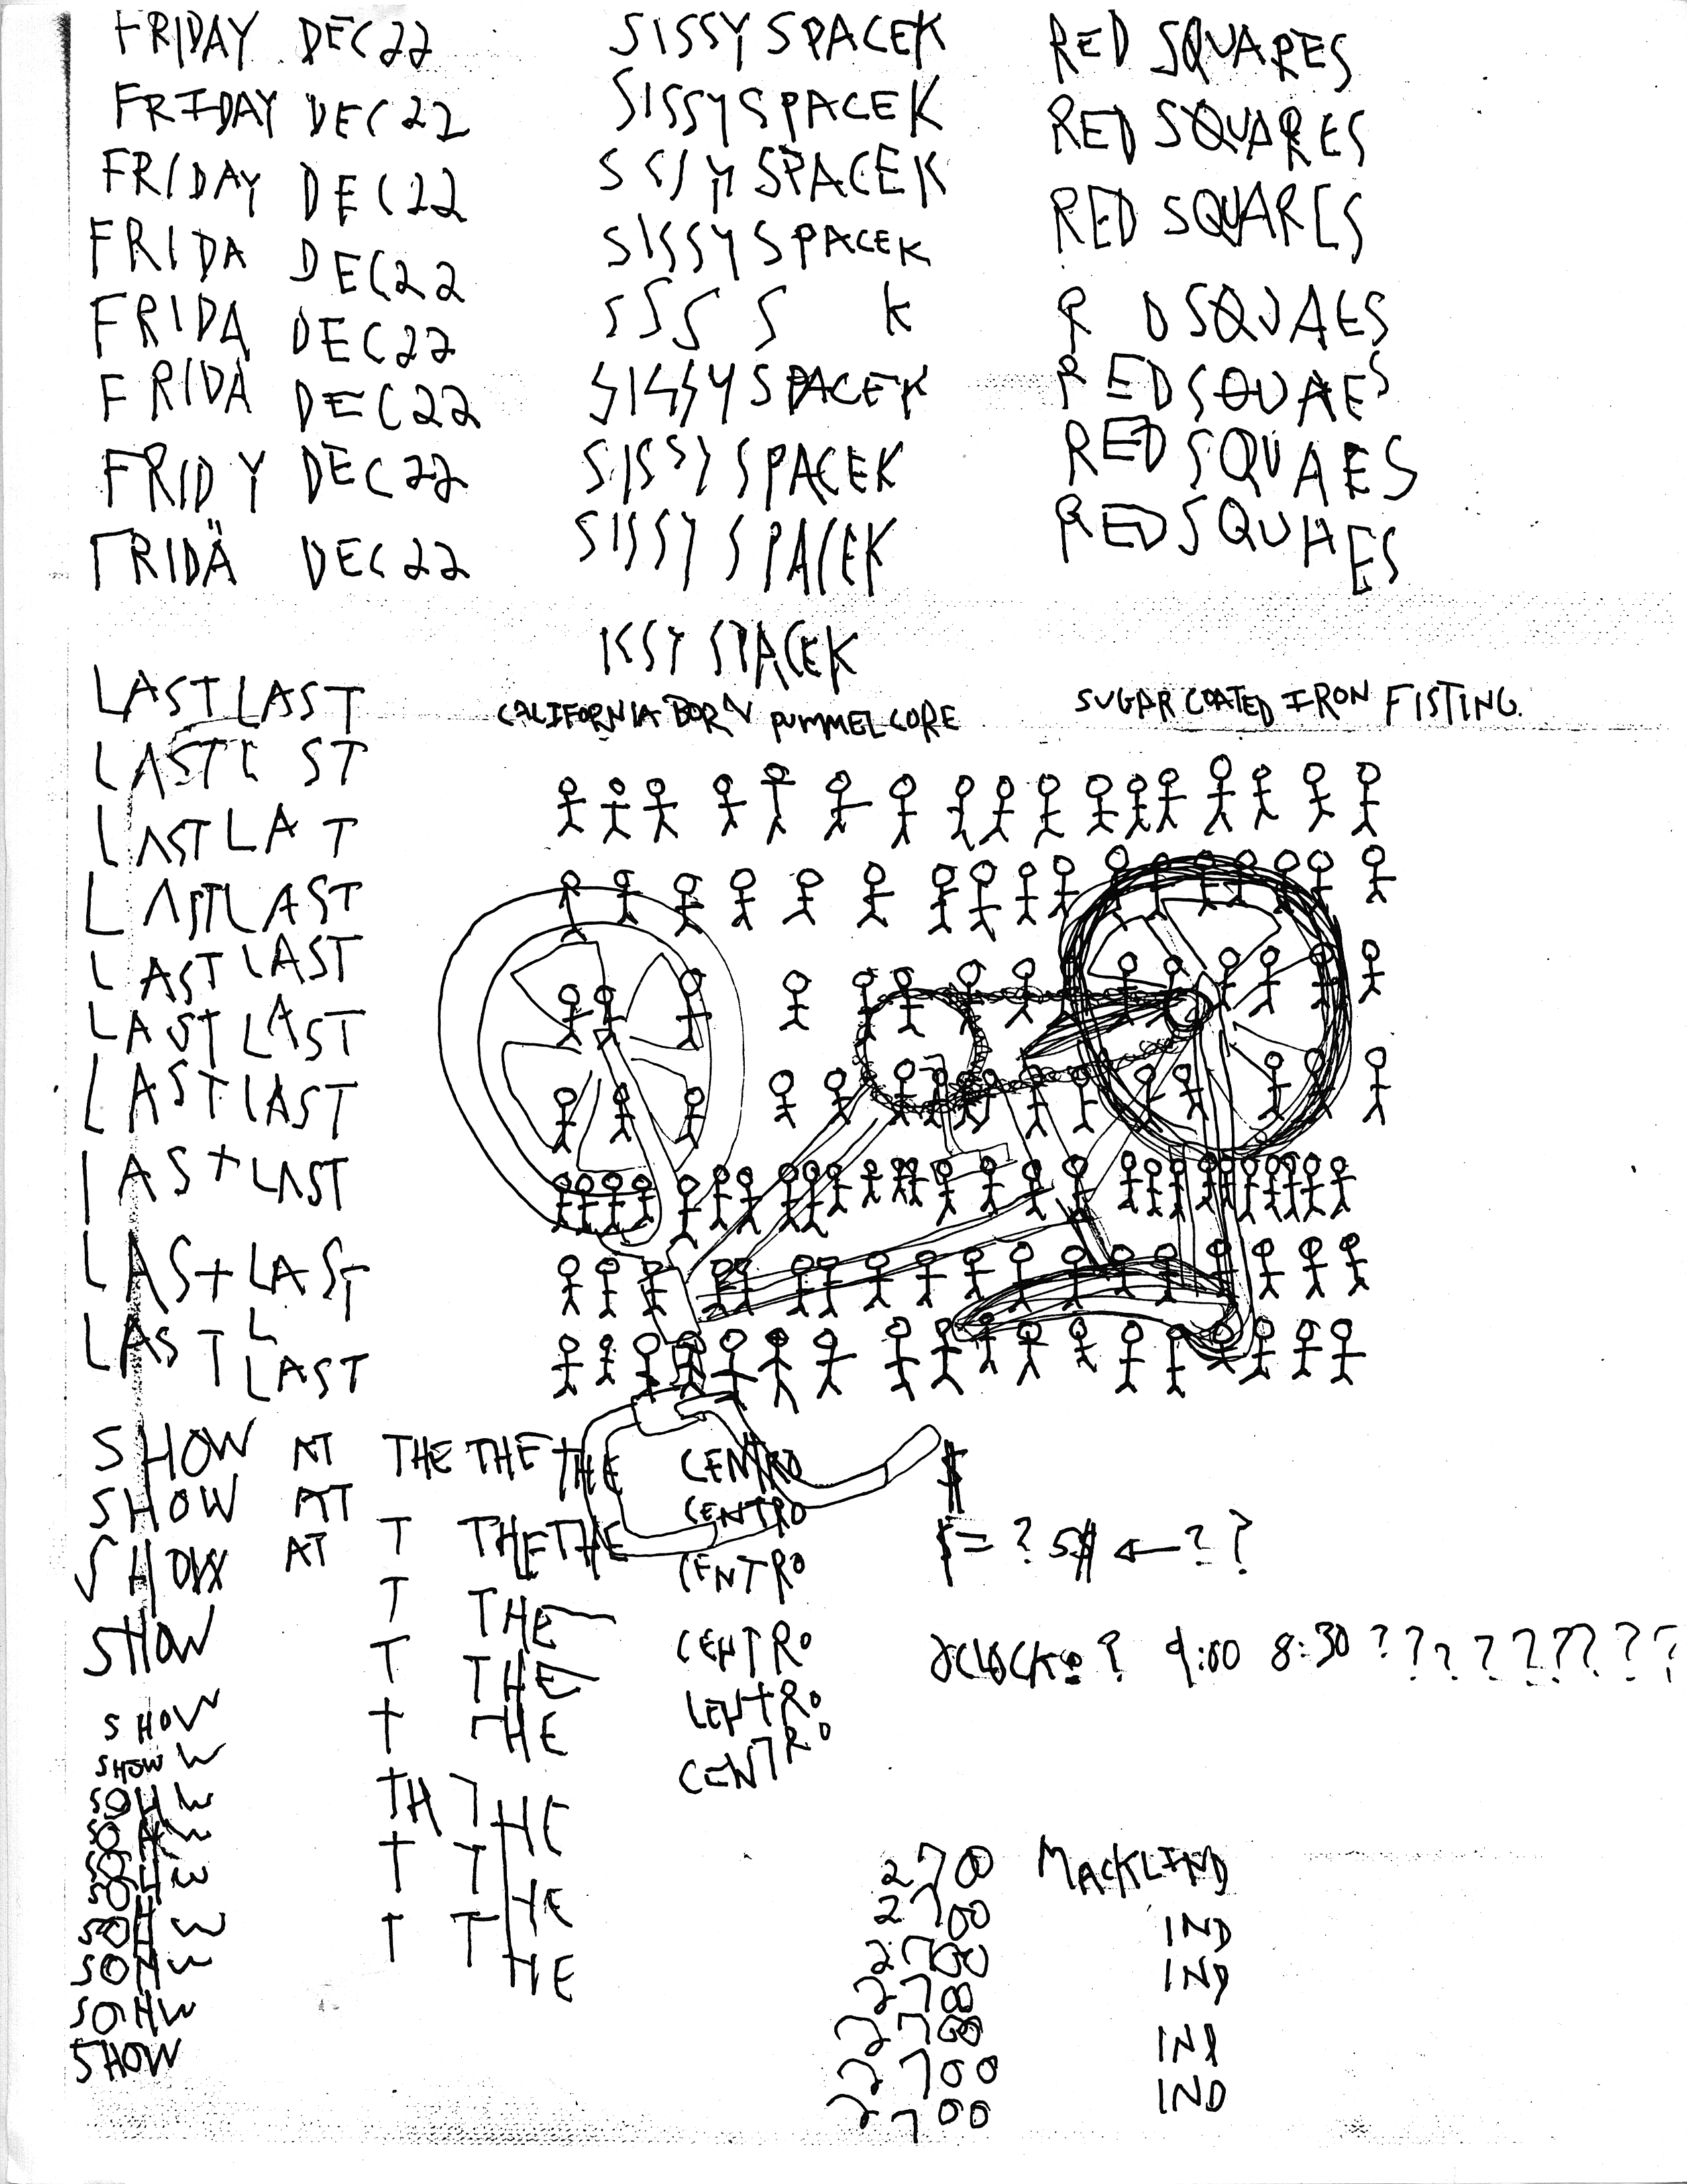 FRIDAY DEC 22 SISSY SPACEK RED SQUARES
FRIDAY DEC 22 SISSY SPACEK RED SQUARES
FRIDAY DEC 22 SISY SPACEK RED SQUARES
FRIDA DEC 22 SISSY SPACEK
FRIDA DEC 22 SSS S K R D SQUAES
FRIDA DEC 22 SISSY SPACEK RED SQUAES
FRIDY DEC 22 SISSY SPACEK RED SQUAES
FRIDÄ DEC 22 SISSY SPACEK RED SQUAES
ISSY SPACEK
CALIFORNIA BORN PUMMELCORE
SUGAR COATED IRON FISTING.
LAST LAST
LAST L ST
LAST LA T
LAST LAST
LAST LAST
LAST LAST
LAST LAST
LAST LAST
LAST LAST
LAST L
LAST
SHOW AT THE THE THE CENTRO $
SHOW AT CENTRO
SHOW AT T THE THE CENTRO $ = ? 5$ ← ? ?
SHOW T THE CENTRO
OCLOCK: ? 9:00 8:30 ? ? ? ? ? ? ? ? ?
T THE CENTRO
SHOW T THE CENTRO
SHOW W
SOHW TH T HE
SOHW
SOHW T T HE
SOHW
SOHW T T HE
SOHW
SOHW
SHOW
2700 MACKLIND
2700 IND
2700 IND
2700
2700 IND
2700 IND
2700